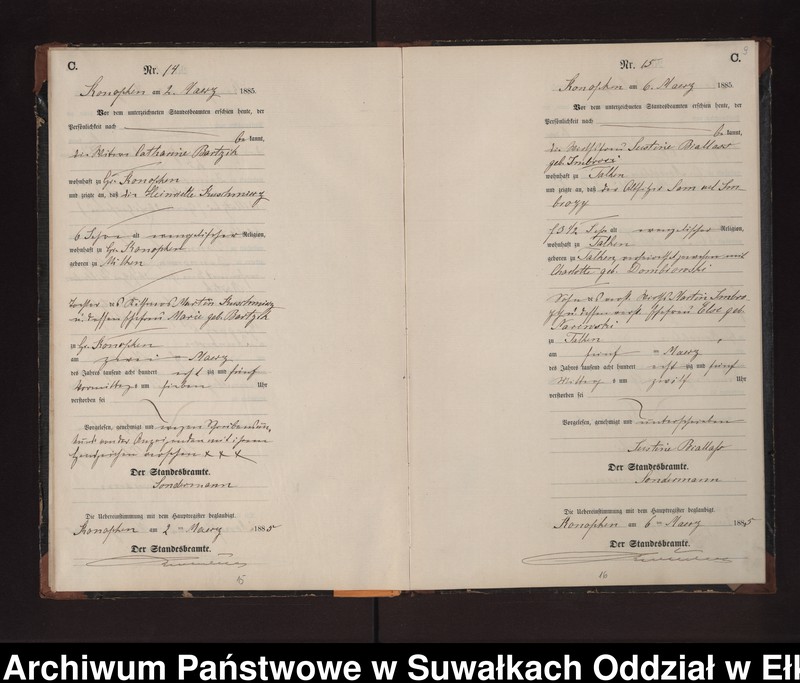 C.
Nr. 14
Konopken am 2. Maerz 1885.
Vor dem unterzeichneten Standesbeamten erschien heute, der
Persönlichkeit nach
be kannt,
die Witwe Catharine Bartzik
wohnhaft zu Gr. Konopken
und zeigte an, daß die Heinriette
6 Jahre alt evangelischer Religion,
wohnhaft zu Gr. Konopken
geboren zu
Tochter des Martin
u. dessen Ehefrau Marie geb. Bartzik
zu Gr. Konopken
am zwei = Maerz
des Jahres tausend acht hundert acht zig und fünf
Vormittag s um sieben Uhr
verstorben sei
Vorgelesen, genehmigt und wegen
von der Anzeigenden mit ihrem
Handzeichen versehen × × ×
Der Standesbeamte.
Sondermann
Die Uebereinstimmung mit dem Hauptregister beglaubigt.
Konopken am 2 = Maerz 1885
Der Standesbeamte.
15
Nr. 15
C.
9
Konopken am 6. Maerz 1885.
Vor dem unterzeichneten Standesbeamten erschien heute, der
Persönlichkeit nach
be kannt,
die Justine Biallass
geb.
wohnhaft zu Talken
und zeigte an, daß der Altsitzer Samuel
73 1/2 Jahre alt evangelischer Religion,
wohnhaft zu Talken
geboren zu Talken, verheirathet gewesen mit
Charlotte geb. Dombrowski
Sohn des Martin
u. dessen Ehefrau Else geb.
zu Talken
am fünf = Maerz
des Jahres tausend acht hundert acht zig und fünf
Mittag s um zwölf Uhr
verstorben sei
Vorgelesen, genehmigt und unterschrieben
Justine Biallass
Der Standesbeamte.
Sondermann
Die Uebereinstimmung mit dem Hauptregister beglaubigt.
Konopken am 6 = Maerz 1885
Der Standesbeamte.
16
Archiwum Państwowe w Suwałkach Oddział w Ełk